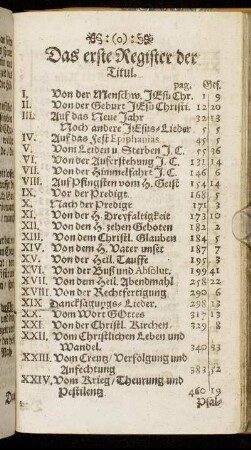 :(o):
Das erste Register der
Titul.
pag. Ges.
I. Von der Menschw. JEsu Chr. 1 9
II. Von der Geburt JEsu Christi. 12 20
III. Auf das Neue Jahr 32 13
Noch andere JEsus-Lieder 5 5
IV. Auf das Fest Epiphanias 45 5
V. Vom Leiden u. Sterben J. C. 55
VI. Von der Auferstehung J. C. 131
VII. Von der Himmelfahrt J. C. 146
VIII. Auf Pfingsten vom H. Geist 154 14
IX. Vor der Predigt. 168 5
X. Nach der Predigt 171 3
XI. Von der H. Dreyfaltigkeit 173 10
XII. Von den H. zehen Geboten 182 2
XIII. Von dem Christl. Glauben 184 5
XIV. Von dem H. Vater unser 187 7
XV. Von der Heil. Tauffe 195 3
XVI. Von der Buß und Absolut. 199 41
XVII. Von dem Heil. Abendmahl 258 22
XVIII. Von der Rechtfertigung 290 6
XIX Dancksagungs-Lieder. 298 13
XX. Vom Wort GOttes 317 13
XXI. Von der Christl. Kirchen 329 8
XXII. Vom Christlichen Leben und
Wandel. 340 33
XXIII. Vom Creutz / Verfolgung und
Anfechtung 383 52
XXIV. Vom Krieg / Theurung und
Pestilentz 460 19
Psal-